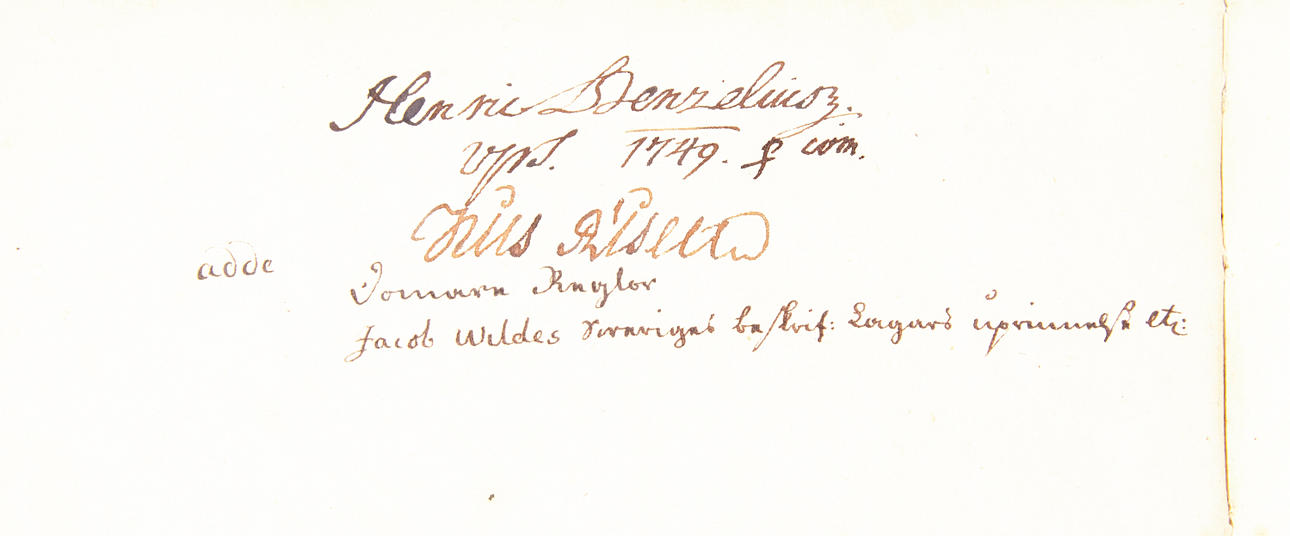 Henric Benzeliusz.
Upsl. 1749. p com.
adde
Domare Reglor
Jacob Wildes Sweriges beskrif: Lagars uprinnelse etc: